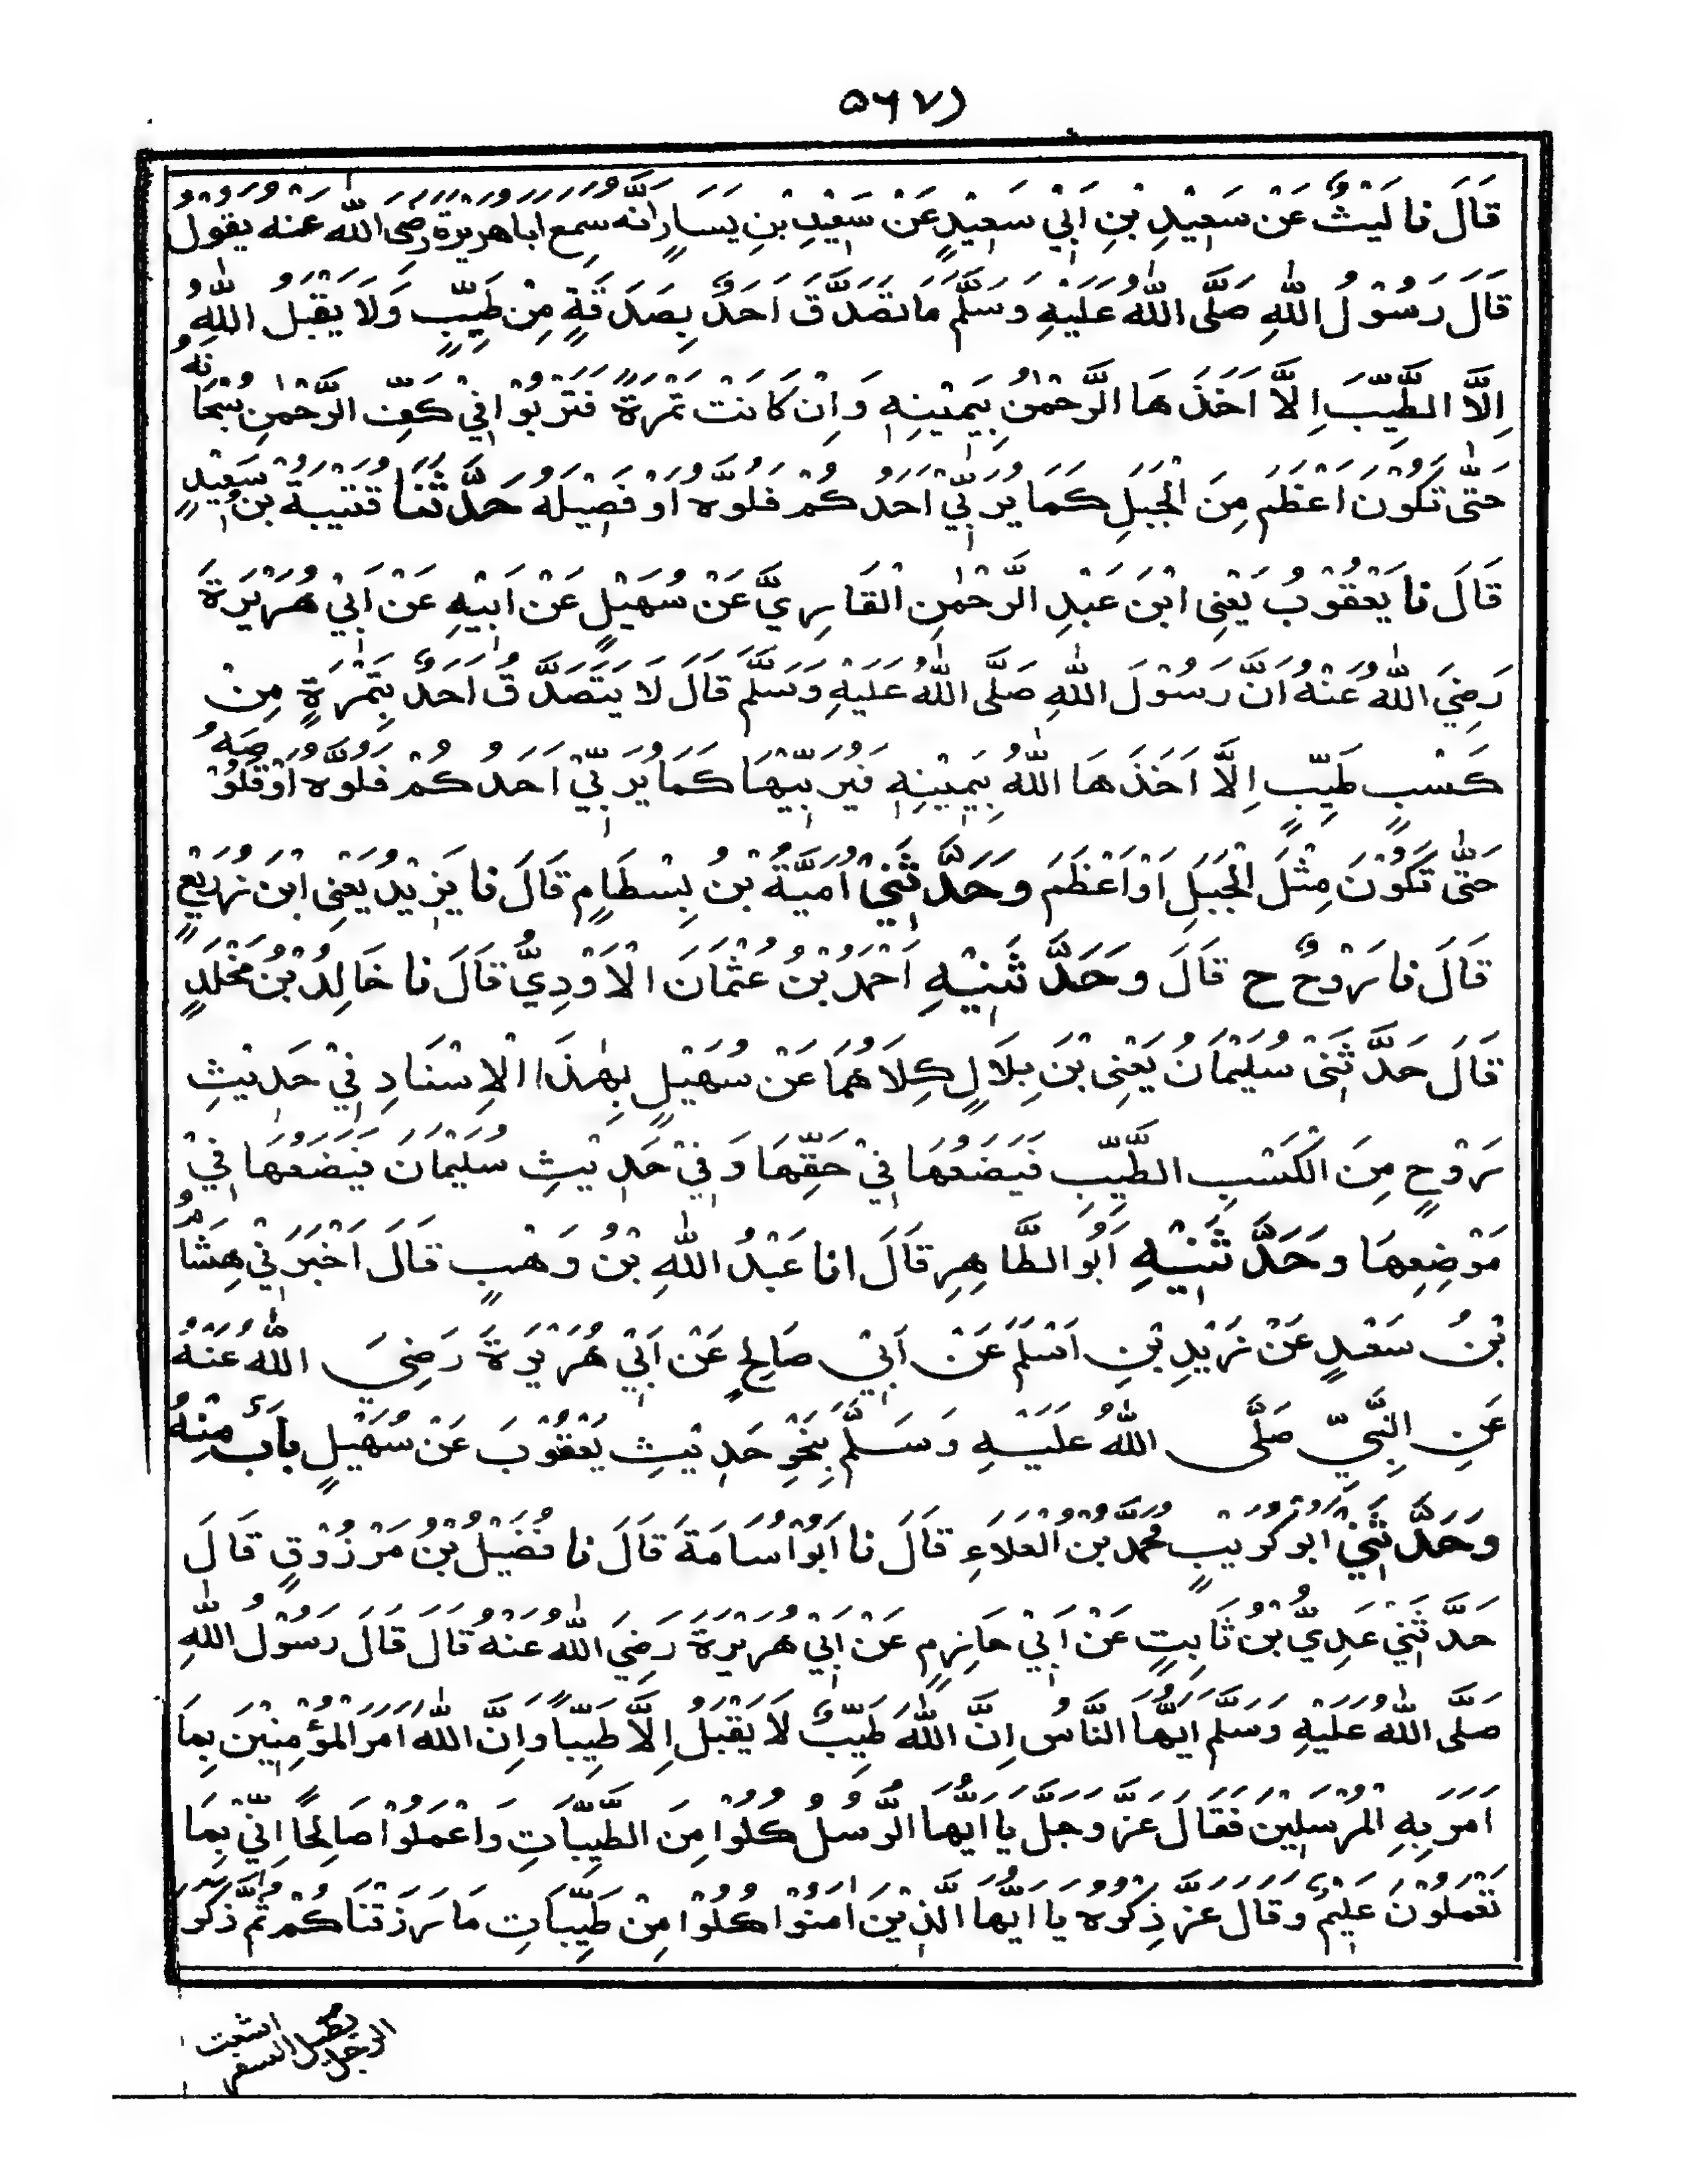 ۵۶۷
قَالَ نا لَيْثٌ عَنْ سَعِيْدِ بْنِ اَبِيْ سَعِيْدٍ عَنْ سَعِيْدِ بْنِ يَسَارٍ اَنَّهُ سَمِعَ اَبَا هُرَيْرَةَ رَضِيَ اللّٰهُ عَنْهُ يَقُوْلُ
قَالَ رَسُوْلُ اللّٰهِ صَلَّى اللّٰهُ عَلَيْهِ وَسَلَّمَ مَا تَصَدَّقَ اَحَدٌ بِصَدَقَةٍ مِنْ طَيِّبٍ وَلَا يَقْبَلُ اللّٰهُ
اِلَّا الطَّيِّبَ اِلَّا اَخَذَهَا الرَّحْمٰنُ بِيَمِيْنِهِ وَاِنْ كَانَتْ تَمْرَةً فَتَرْبُوْا فِيْ كَفِّ الرَّحْمٰنِ سُبْحَانَهُ
حَتّٰى تَكُوْنَ اَعْظَمَ مِنَ الْجَبَلِ كَمَا يُرَبِّيْ اَحَدُكُمْ فَلُوَّهُ اَوْ فَصِيْلَهُ حَدَّثَنَا قُتَيْبَةُ بْنُ سَعِيْدٍ
قَالَ نَا يَعْقُوْبُ يَعْنِى ابْنَ عَبْدِ الرَّحْمٰنِ الْقَارِيَّ عَنْ سُهَيْلٍ عَنْ اَبِيْهِ عَنْ اَبِيْ هُرَيْرَةَ
رَضِيَ اللّٰهُ عَنْهُ اَنَّ رَسُوْلَ اللّٰهِ صَلَّى اللّٰهُ عَلَيْهِ وَسَلَّمَ قَالَ لَا يَتَصَدَّقُ اَحَدٌ بِتَمْرَةٍ مِنْ
كَسْبٍ طَيِّبٍ اِلَّا اَخَذَهَا اللّٰهُ بِيَمِيْنِهِ فَيُرَبِّيْهَا كَمَا يُرَبِّيْ اَحَدُكُمْ فَلُوَّهُ اَوْ قَلُوْصَهُ
حَتّٰى تَكُوْنَ مِثْلَ الْجَبَلِ اَوْ اَعْظَمَ وَحَدَّثَنِيْ اُمَيَّةُ بْنُ بِسْطَامٍ قَالَ نا يَزِيْدُ يَعْنِى ابْنَ زُرَيْعٍ
قَالَ نا رَوْحٌ ح قَالَ وحَدَّثَنِيْهِ اَحْمَدُ بْنُ عُثْمَانَ الْاَوْدِيُّ قَالَ نا خَالِدُ بْنُ مَخْلَدٍ
قَالَ حَدَّثَنِىْ سُلَيْمَانُ يَعْنِى بْنَ بِلَالٍ كِلَاهُمَا عَنْ سُهَيْلٍ بِهٰذَا الْاِسْنَادِ فِيْ حَدِيْثِ
رَوْحٍ مِنَ الْكَسْبِ الطَّيِّبِ فَيَضَعُهَا فِيْ حَقِّهَا وَفِيْ حَدِيْثِ سُلَيْمَانَ فَيَضَعُهَا فِيْ
مَوْضِعِهَا وحَدَّثَنِيْهِ اَبُو الطَّاهِرِ قَالَ انا عَبْدُ اللّٰهِ بْنُ وَهْبٍ قَالَ اَخْبَرَنِيْ هِشَامُ
بْنُ سَعْدٍ عَنْ زَيْدِ بْنِ اَسْلَمَ عَنْ اَبِيْ صَالِحٍ عَنْ اَبِيْ هُرَيْرَةَ رَضِيَ اللّٰهُ عَنْهُ
عَنِ النَّبِيِّ صَلَّى اللّٰهُ عَلَيْهِ وَسَلَّمَ بِنَحْوِ حَدِيْثِ يَعْقُوْبَ عَنْ سُهَيْلٍ بَابٌ مِنْهُ
وحَدَّثَنِيْ اَبُوْ كُرَيْبٍ مُحَمَّدُ بْنُ الْعَلَاءِ قَالَ نا اَبُوْ اُسَامَةَ قَالَ نا فُضَيْلُ بْنُ مَرْزُوْقٍ قَالَ
حَدَّثَنِيْ عَدِيُّ بْنُ ثَابِتٍ عَنْ اَبِيْ حَازِمٍ عَنْ اَبِيْ هُرَيْرَةَ رَضِيَ اللّٰهُ عَنْهُ قَالَ قَالَ رَسُوْلُ اللّٰهِ
صَلَّى اللّٰهُ عَلَيْهِ وَسَلَّمَ اَيُّهَا النَّاسُ اِنَّ اللّٰهَ طَيِّبٌ لَا يَقْبَلُ اِلَّا طَيِّبًا وَاِنَّ اللّٰهَ اَمَرَ الْمُؤْمِنِيْنَ بِمَا
اَمَرَ بِهِ الْمُرْسَلِيْنَ فَقَالَ عَزَّ وَجَلَّ يَا اَيُّهَا الرُّسُلُ كُلُوْا مِنَ الطَّيِّبَاتِ وَاعْمَلُوْا صَالِحًا اِنِّيْ بِمَا
تَعْمَلُوْنَ عَلِيْمٌ وَقَالَ عَزَّ ذِكْرُهُ يَا اَيُّهَا الَّذِيْنَ اٰمَنُوْا كُلُوْا مِنْ طَيِّبَاتِ مَا رَزَقْنَاكُمْ ثُمَّ ذَكَرَ
الرجل يطيل السفر اشعث